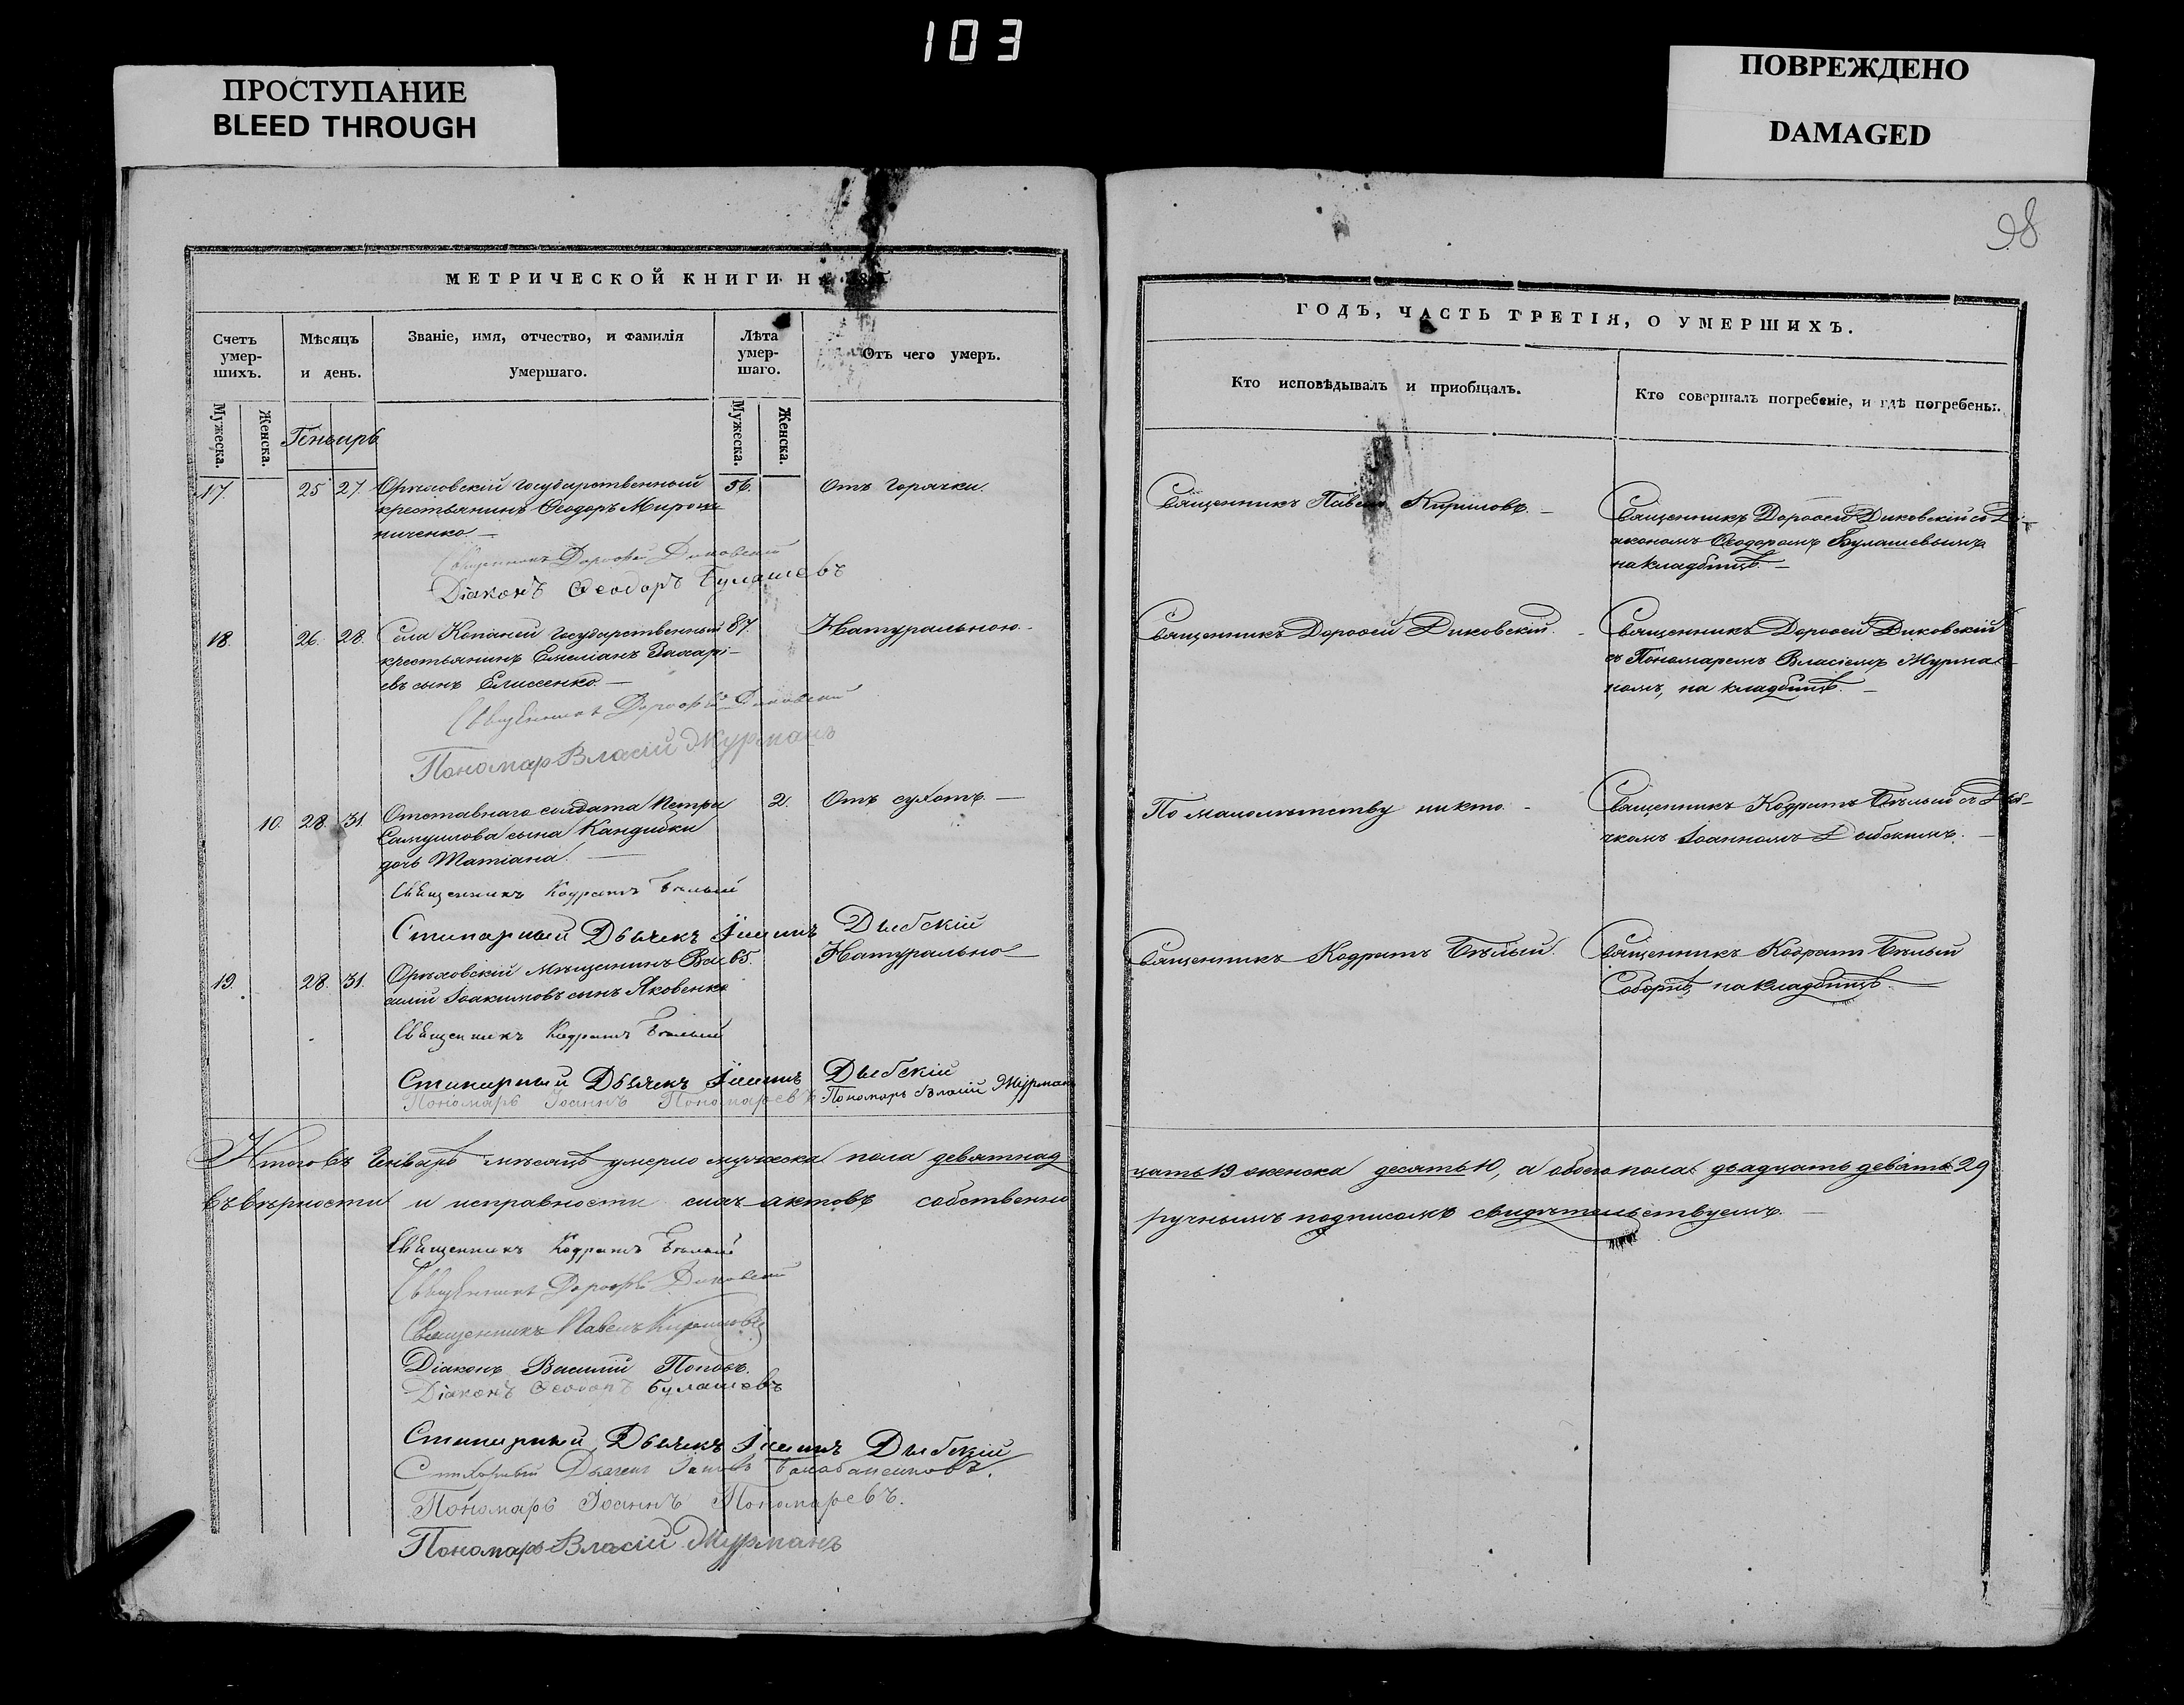 103
ПРОСТУПАНИЕ
BLEED THROUGH
ПОВРЕЖДЕНО
DAMAGED
98
МЕТРИЧЕСКОЙ КНИГИ
ГОДЪ, ЧАСТЬ ТРЕТІЯ, О УМЕРШИХЪ.
Счетъ умер-шихъ.
Мужеска.
Женска.
Мѣсяцъ и день.
Званіе, имя, отчество, и фамилія умершаго.
Лѣта умер-шаго.
Мужеска.
Женска.
Отъ чего умеръ.
Кто исповѣдывалъ и пріобщалъ.
Кто совершалъ погребеніе, и гдѣ погребены.
Генварь
17. 25 27. Орѣховскій государственный 56. Отъ горячки. Священникъ Павелъ Кириловъ. – Священникъ Дорофей Диковскій съ Ді-
крестьянинъ Феодоръ Мирош акономъ Феодоромъ Булашевымъ
ниченко. – на кладбищѣ. –
Священникъ Дорофей Диковскій
Діаконъ Феодоръ Булашевъ
18. 26. 28. Села Копаней государственный 87. Натуральною. – Священникъ Дорофей Диковскій. – Священникъ Дорофей Диковскій
крестьянинъ Емеліанъ Захарі- съ Пономаремъ Власіемъ Журма-
евъ сынъ Елисенко. – номъ, на кладбищѣ. –
Священникъ Дорофей Диковскій
Пономар Власій Журманъ
10. 28. 31. Отставнаго солдата Петра 2. Отъ сухотъ. – По малолѣтству никто. – Священникъ Кодратъ Бѣлый съ Дья-
Самуилова сына Кандибки чкомъ Іоанномъ
дочь Татіана. –
Священникъ Кодратъ Бѣлый
Стихарный Дьячекъ Іоаннъ
19. 28. 31. Орѣховскій мѣщанинъ Ва- 65. Натурально – Священникъ Кодратъ Бѣлый. Священникъ Кодратъ Бѣлый
силій Іоакимовъ сынъ Яковенко Соборнѣ на кладбищѣ. –
Священникъ Кодратъ Бѣлый
Стихарный Дьячекъ Іоаннъ
Пономарь Іоаннъ Пономаревъ Пономарь Власій Журманъ
Итого въ Генварѣ мѣсяцѣ умерло мужеска пола девятнад
цать 19 женска десять 10, а обоего пола двадцать девять 29
въ вѣрности и исправности сихъ актовъ собственно
ручнымъ подписомъ свидѣтельствуемъ. –
Священникъ Кодратъ Бѣлый
Священникъ Дорофей Диковскій
Священникъ Павелъ Кириловъ
Діаконъ Василій Поповъ.
Діаконъ Феодоръ Булашевъ
Стихарный Дьячекъ Іоаннъ
Стихарный Дьячекъ
Пономарь Іоаннъ Пономаревъ.
Пономарь Власій Журманъ